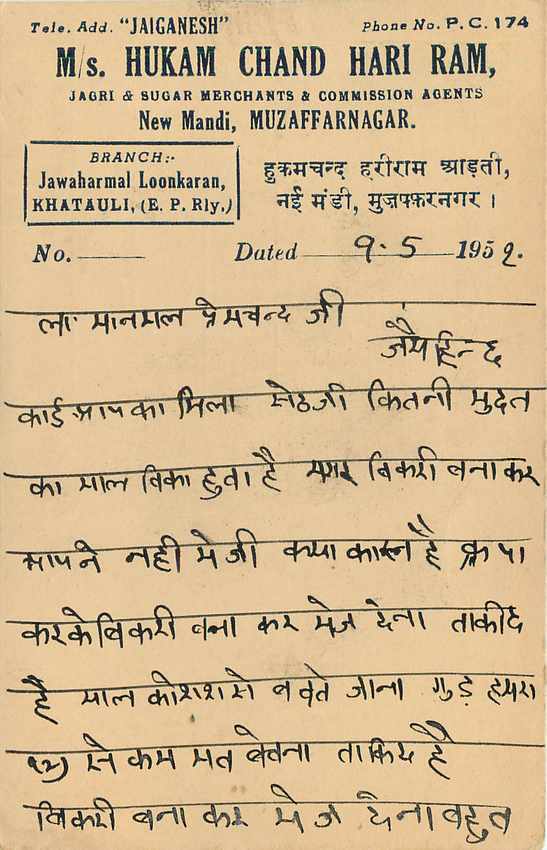 Tele. Add. "JAIGANESH" Phone No. P. C. 174
M/s. HUKAM CHAND HARI RAM,
JAGRI & SUGAR MERCHANTS & COMMISSION AGENTS
New Mandi, MUZAFFARNAGAR.
BRANCH:-
Jawaharmal Loonkaran,
KHATAULI, (E. P. Rly.)
हुकमचन्द हरीराम आड़ती,
नई मंडी, मुज़फ्फ़रनगर ।
No. Dated 9.5 1952.
ला॰ मानमल प्रेमचन्द जी
जैयहिन्द
कार्ड आपका मिला सेठजी कितनी मुदत
का माल बिका हुवा है मगर बिकरी बना कर
आपने नही भेजी क्या कारन है क्रपा
करके बिकरी बना कर भेज देना ताकीद
है माल कोशश से बेचते जाना गुड़ हमरा
से कम मत बेचना ताकिद है
बिकरी बना कर भेज देना बहुत